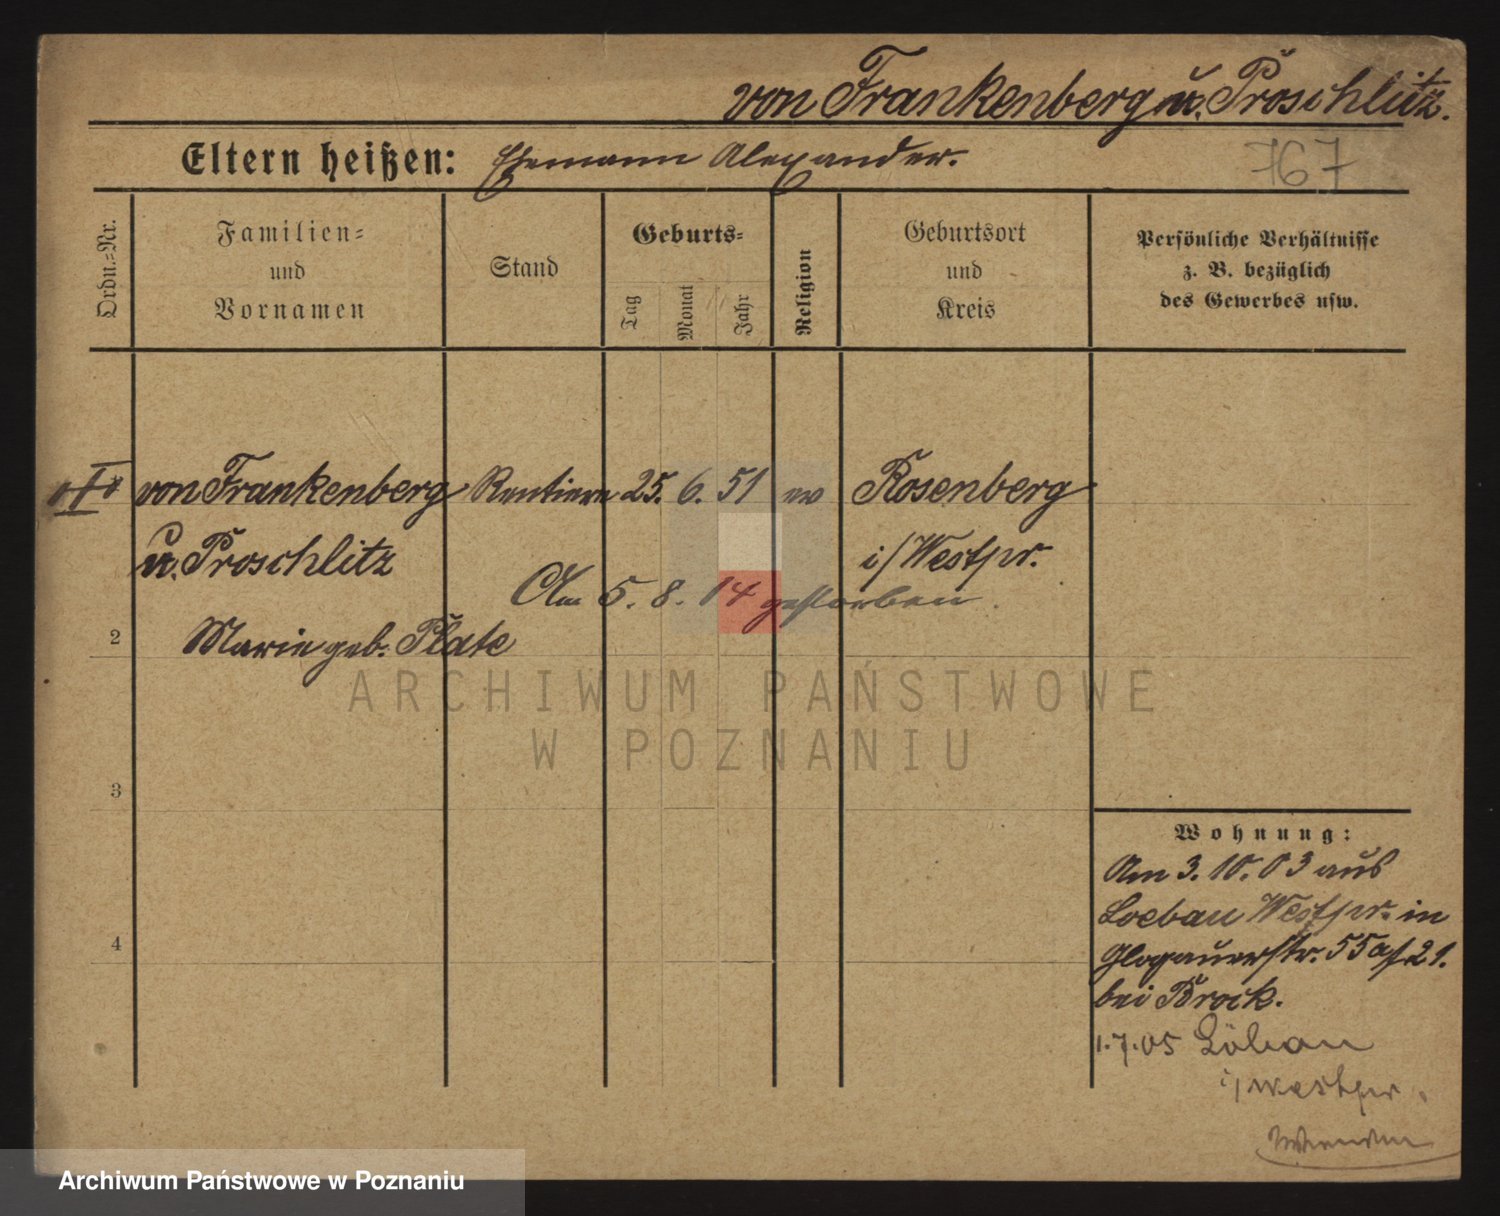 von Frankenberg u. Proschlitz.
Eltern heißen: Ehemann Alexander.
767
Ordn.-Nr.
Familien-
und
Vornamen
Stand
Geburts-
Tag
Monat
Jahr
Religion
Geburtsort
und
Kreis
Persönliche Verhältnisse
z. B. bezüglich
des Gewerbes usw.
von Frankenberg Rentiere 25. 6. 51 ev Rosenberg
u. Proschlitz i/Westpr.
Am 5. 8. 14 gestorben
2 Marie geb. Plate
ARCHIWUM PAŃSTWOWE
W POZNANIU
3
Wohnung:
Am 3. 10. 03 aus
Loebau Westpr. in
4
Glogauerstr. 55 a/21.
bei Brock.
1.7.05 Löbau
i/Westpr.
Archiwum Państwowe w Poznaniu